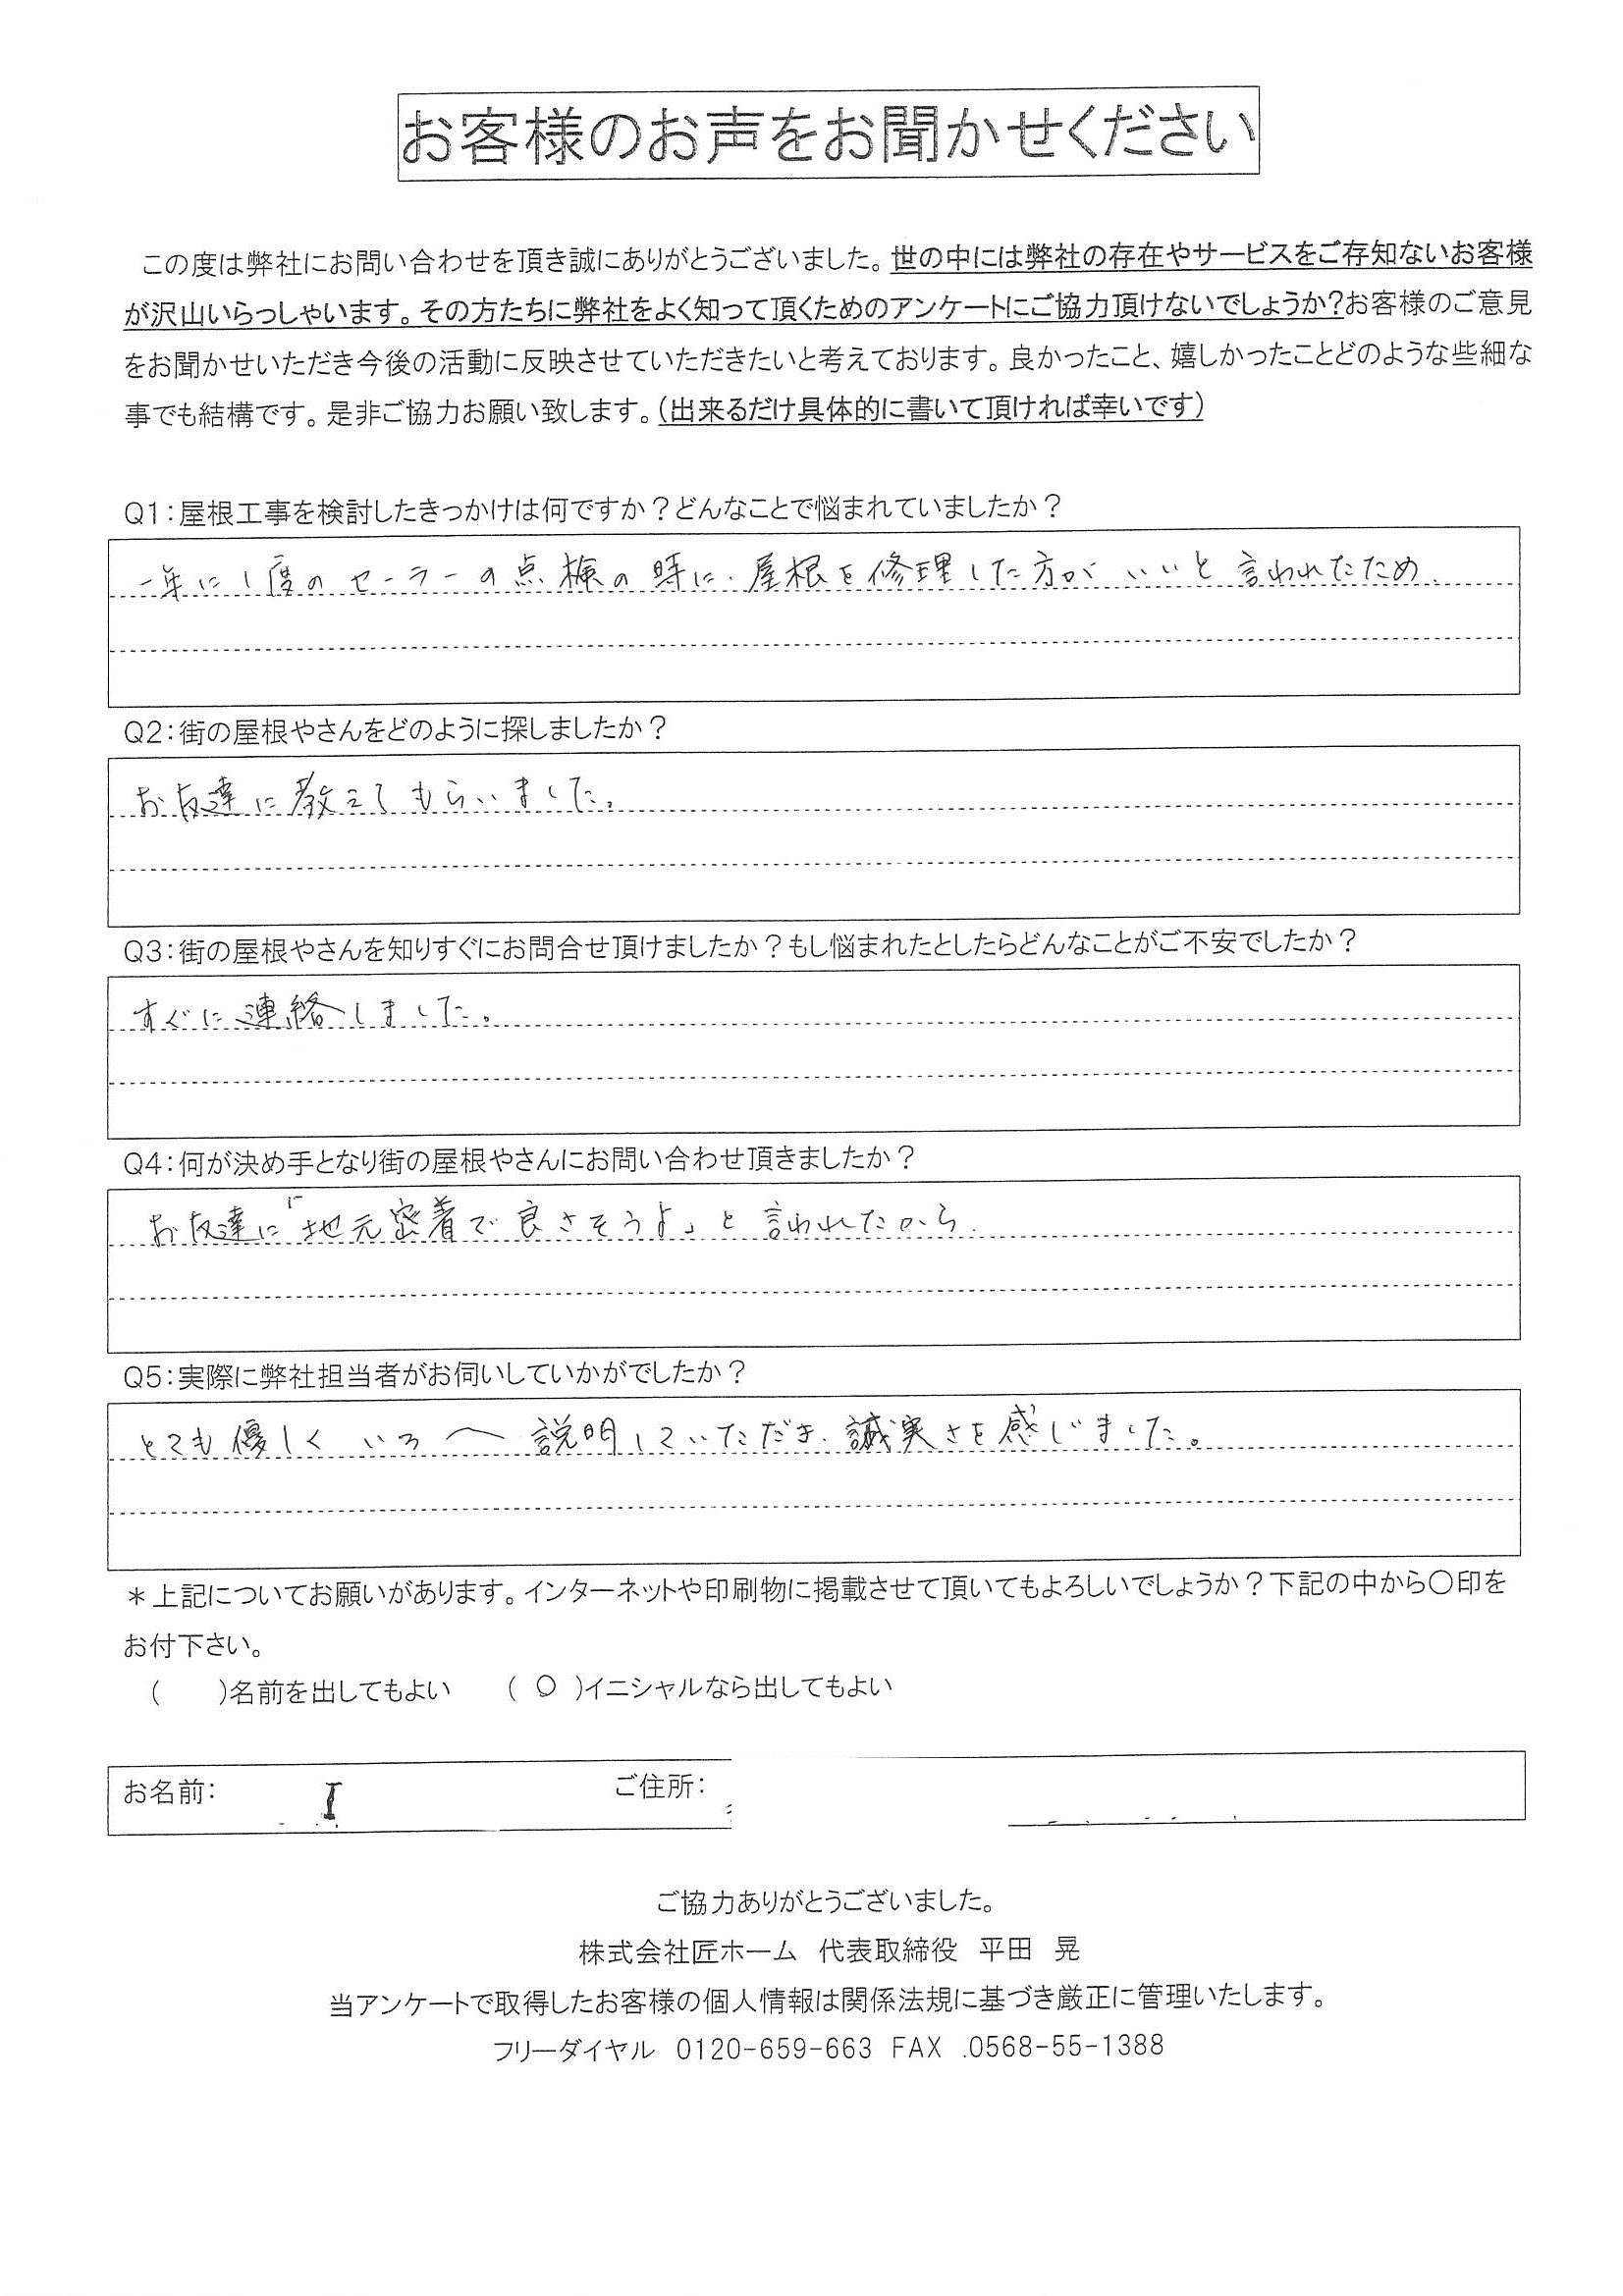 お客様のお声をお聞かせください
この度は弊社にお問い合わせを頂き誠にありがとうございました。世の中には弊社の存在やサービスをご存知ないお客様
が沢山いらっしゃいます。その方たちに弊社をよく知って頂くためのアンケートにご協力頂けないでしょうか?お客様のご意見
をお聞かせいただき今後の活動に反映させていただきたいと考えております。良かったこと、嬉しかったことどのような些細な
事でも結構です。是非ご協力お願い致します。(出来るだけ具体的に書いて頂ければ幸いです)
Q1:屋根工事を検討したきっかけは何ですか?どんなことで悩まれていましたか?
一年に1度のセーラーの点検の時に、屋根を修理した方がいいと言われたため、
Q2:街の屋根やさんをどのように探しましたか?
お友達に教えてもらいました。
Q3:街の屋根やさんを知りすぐにお問合せ頂けましたか?もし悩まれたとしたらどんなことがご不安でしたか?
すぐに連絡しました。
Q4:何が決め手となり街の屋根やさんにお問い合わせ頂きましたか?
お友達に「地元密着で良さそうよ」と言われたから、
Q5:実際に弊社担当者がお伺いしていかがでしたか?
とても優しくいろ〱説明していただき、誠実さを感じました。
*上記についてお願いがあります。インターネットや印刷物に掲載させて頂いてもよろしいでしょうか?下記の中から○印を
お付下さい。
(　　)名前を出してもよい　(○)イニシャルなら出してもよい
お名前: I ご住所:
ご協力ありがとうございました。
株式会社匠ホーム 代表取締役 平田 晃
当アンケートで取得したお客様の個人情報は関係法規に基づき厳正に管理いたします。
フリーダイヤル 0120-659-663 FAX .0568-55-1388